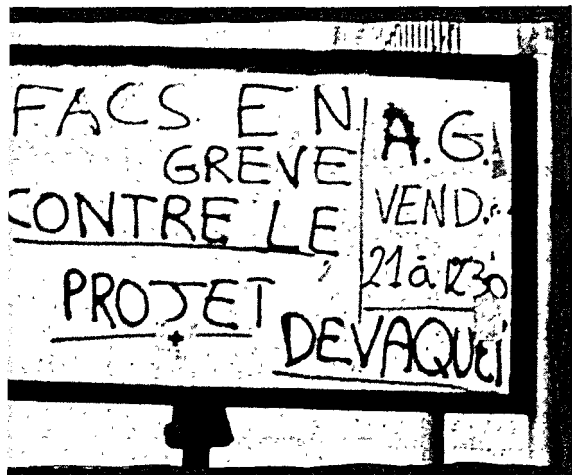 FACS EN
GREVE
CONTRE LE
PROJET
DEVAQUET
A.G.
VEND.
21 à 12 30